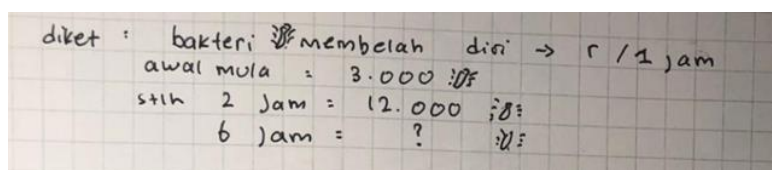 diket : bakteri membelah diri → r / 1 jam
awal mula : 3.000
stlh 2 Jam = 12.000
6 Jam = ?